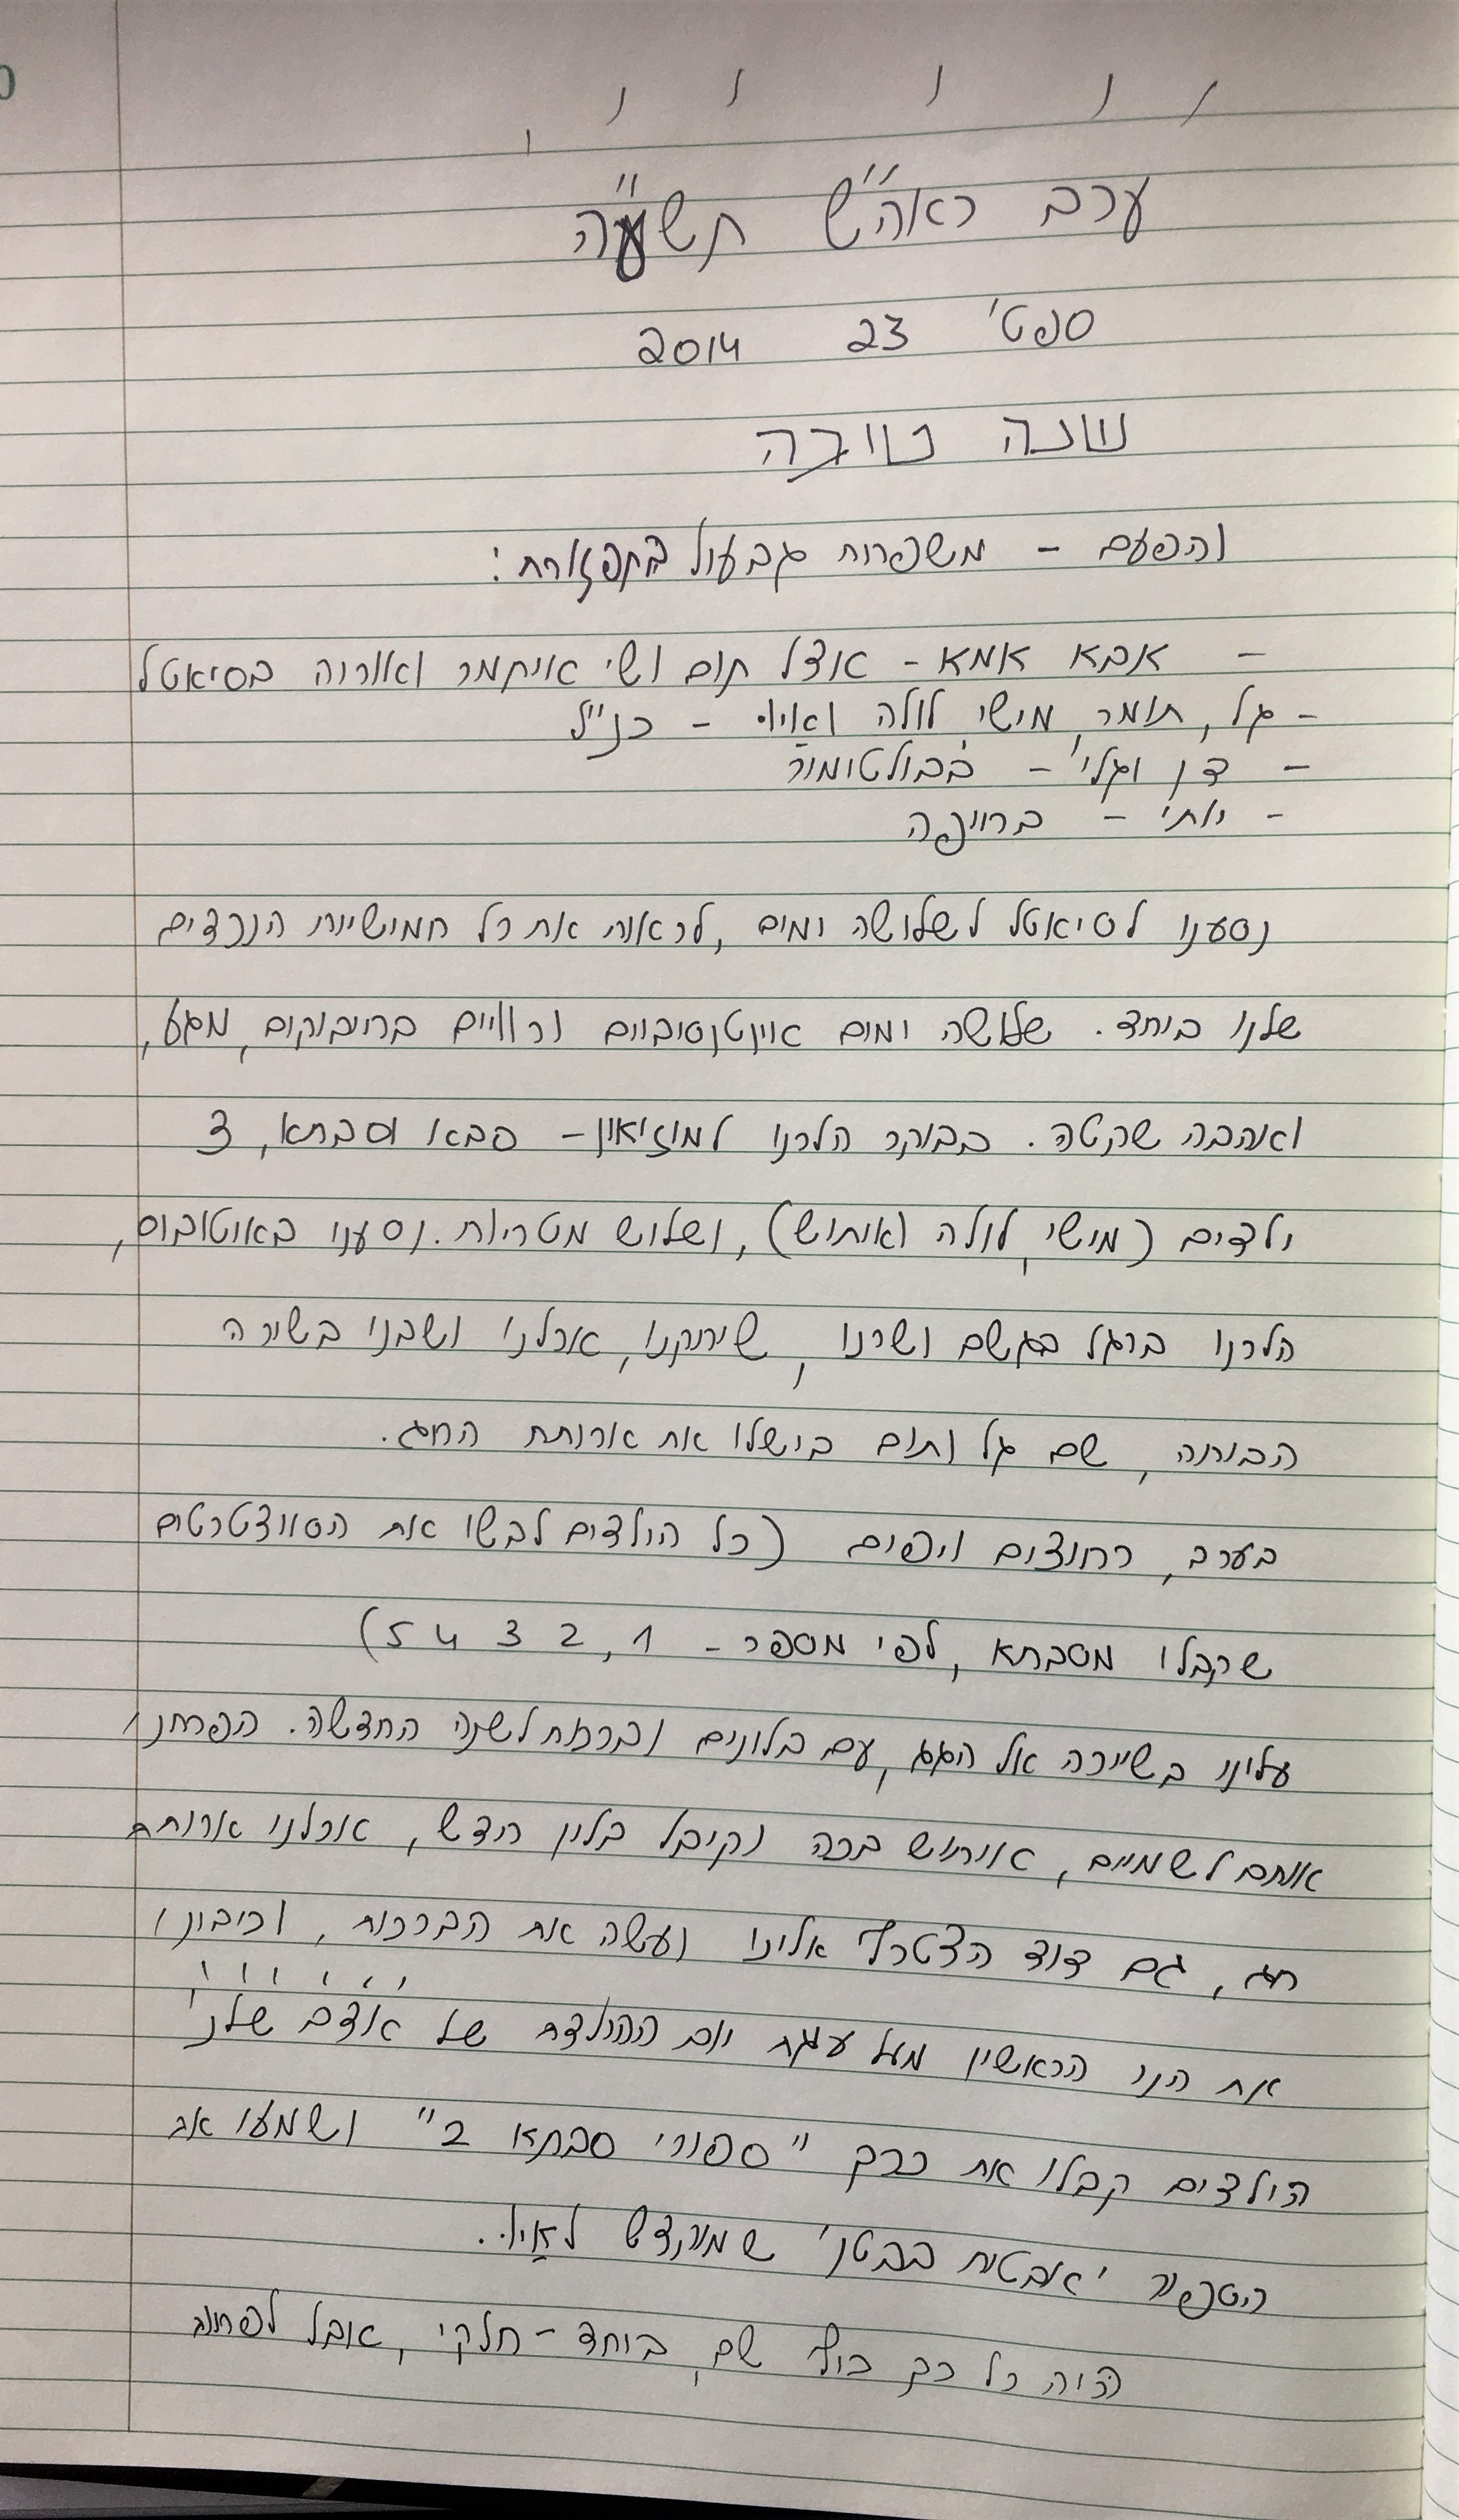 ערב ראה"ש תשע"ה
ספט' 23 2014
שנה טובה
והפעם - משפחת גבעול בתפזורת:
- אבא אמא - אצל תום ושי איתמר ואוריה בסיאטל
- גל, תומר, מישי, לולה ואיו - כנ"ל
- דן וגלי - בבולטימור
- יותי - בחיפה
נסענו לסיאטל לשלושה ימים, לראות את כל חמישיית הנכדים
שלנו ביחד. שלושה ימים אינטנסיביים ורוויים בחיבוקים, מגע,
ואהבה שקטה. בבוקר הלכנו למוזיאון - סבא וסבתא, 3
ילדים (מישי, לולה ואיתוש), ושלוש מטריות. נסענו באוטובוס,
הלכנו ברגל בגשם ושרנו, שיחקנו, אכלנו ושבנו בשירה
הביתה, שם גל ותום בישלו את ארוחת החג.
בערב, רחוצים ויפים (כל הילדים לבשו את הסווצ'רטים
שקבלו מסבתא, לפי מספר - 1, 2 3 4 5)
עלינו בשיירה אל הגג, עם בלונים וברכות לשנה החדשה. הפרחנו
אותם לשמיים, איתוש בכה וקיבל בלון חדש, אכלנו ארוחת
חג, גם דוד הצטרף אלינו ועשה את הברכות, וכיבינו
את הנר הראשון מעל עוגת יום ההולדת של אדם שלנו
הילדים קבלו את כרך "ספורי סבתא 2" ושמעו את
הספור 'אבטיח בבטן' שמוקדש לאיו.
היה כל כך כיף שם, ביחד - חלקי, אבל לפחות